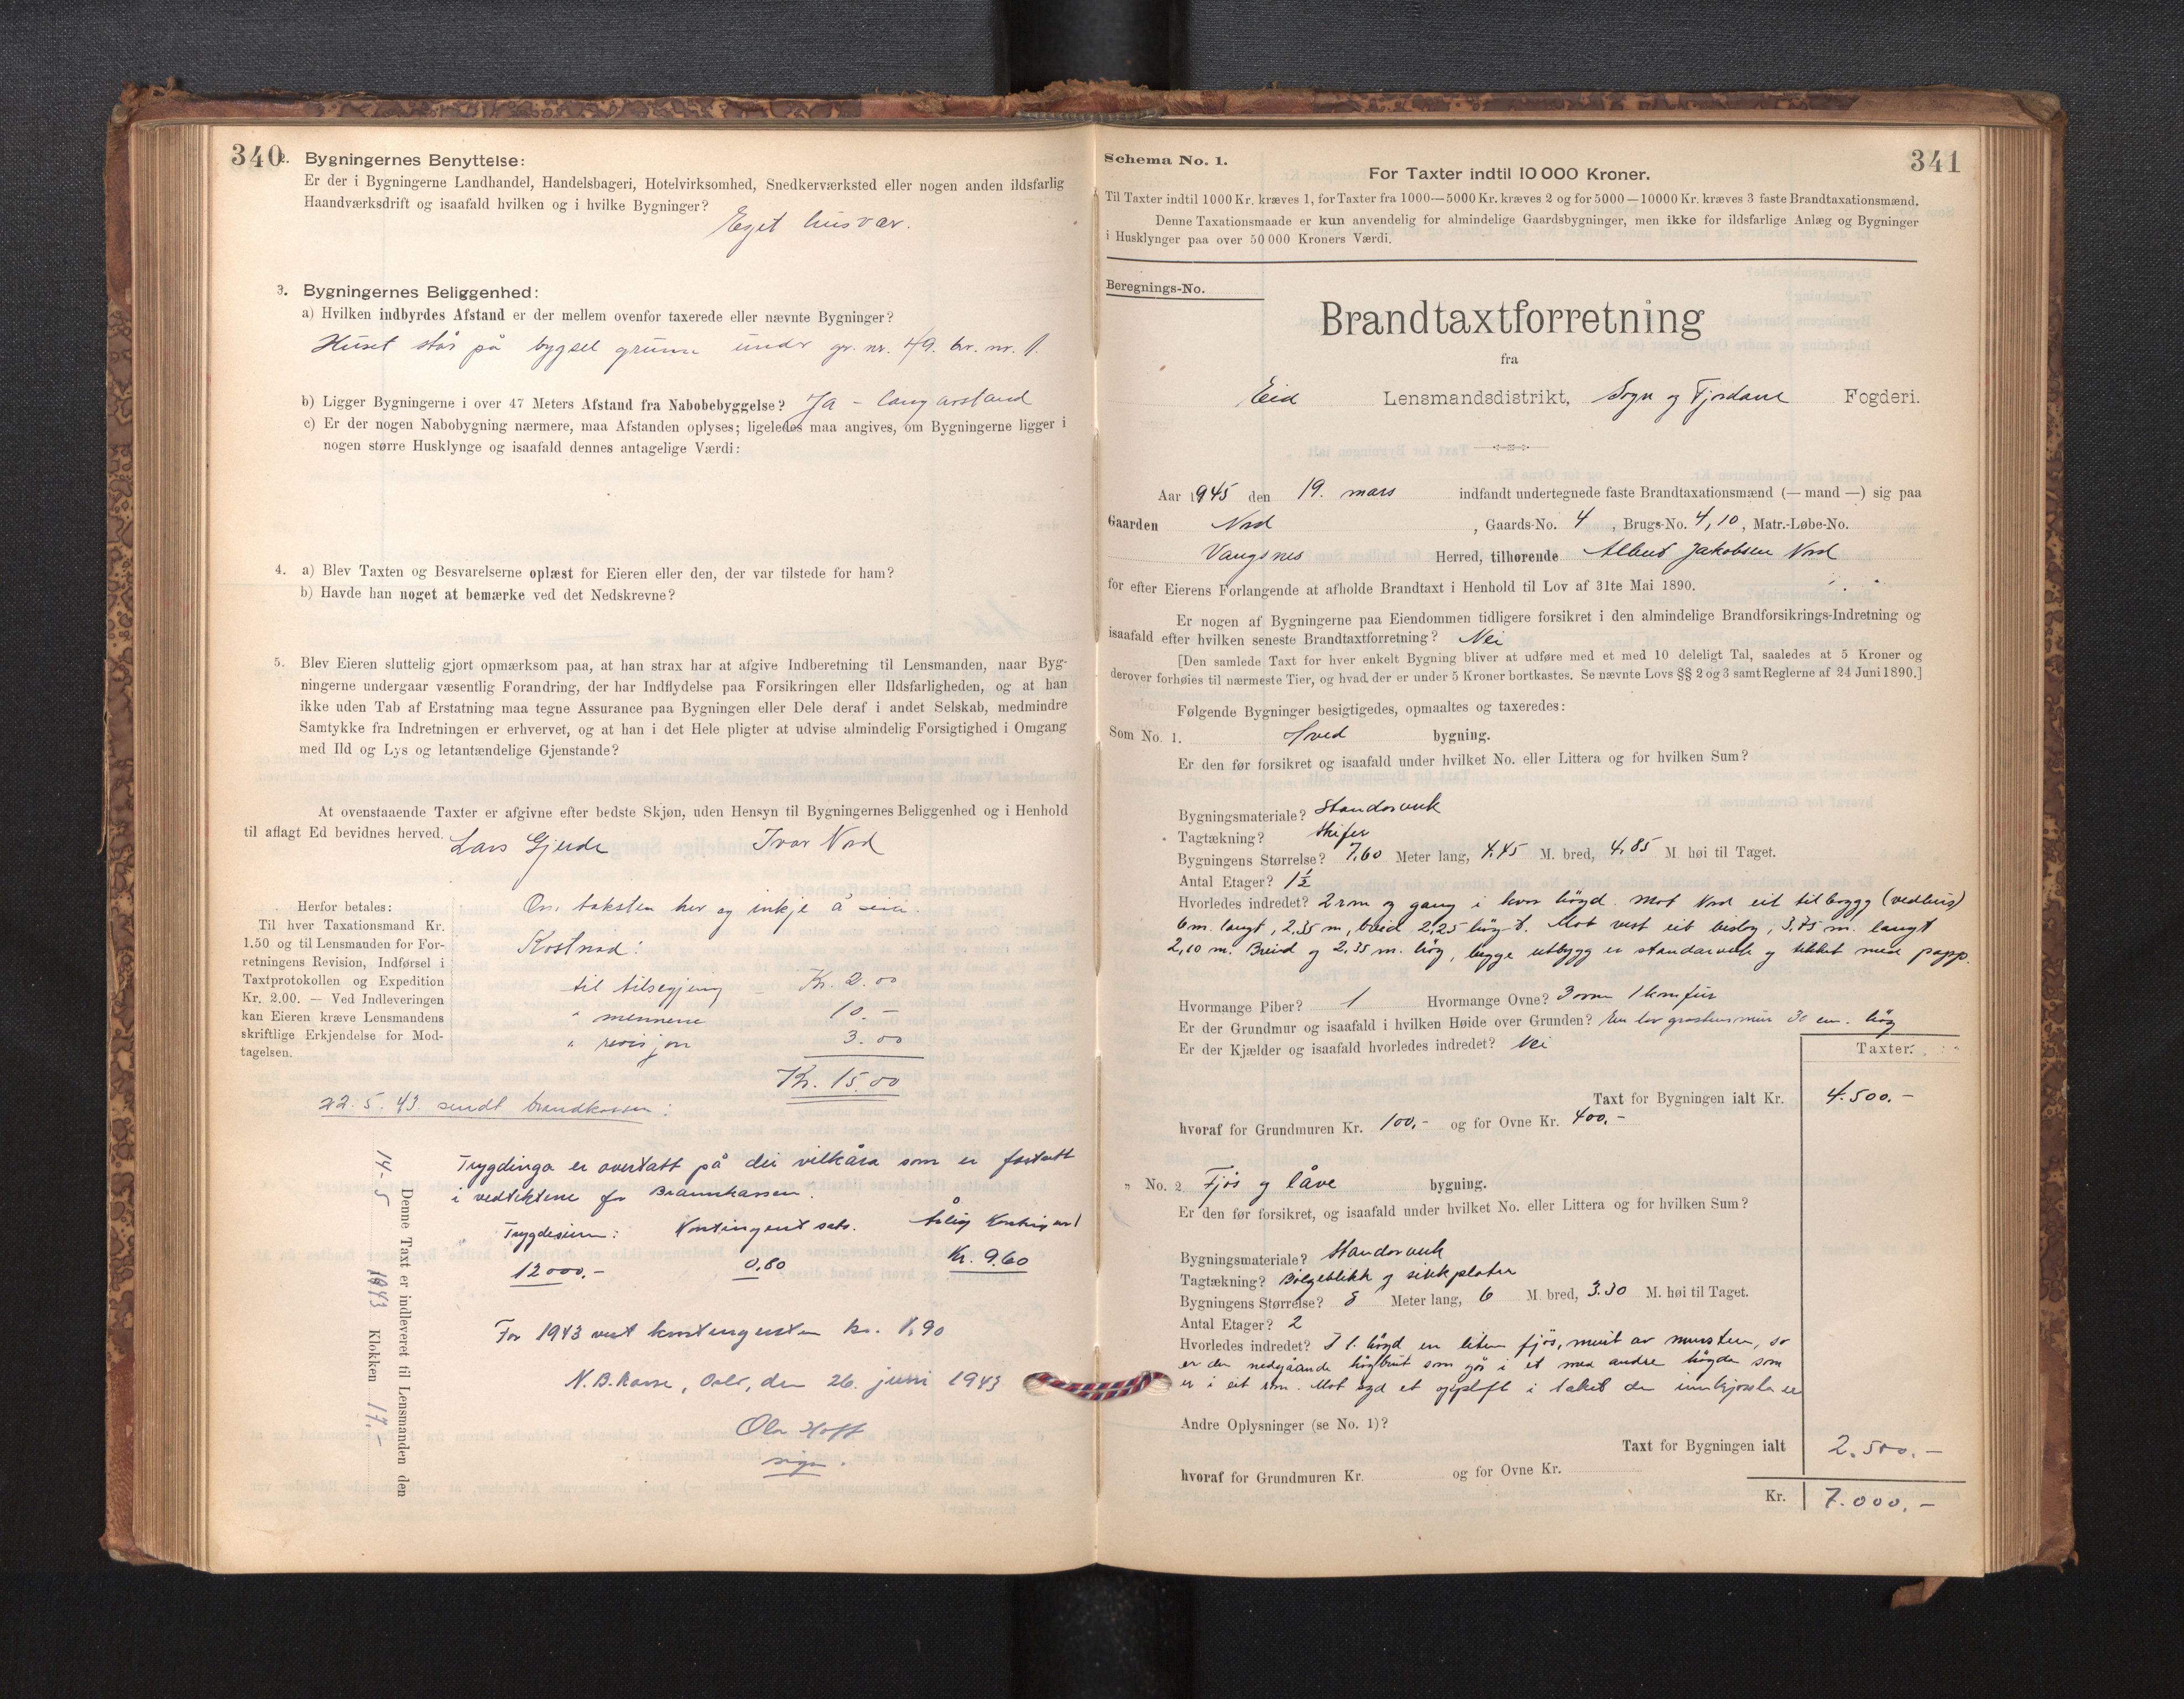 340
2. Bygningernes Benyttelse:
Er der i Bygningerne Landhandel, Handelsbageri, Hotelvirksomhed, Snedkerværksted eller nogen anden ildsfarlig
Haandværksdrift og isaafald hvilken og i hvilke Bygninger?
Eget husvær.
3. Bygningernes Beliggenhed:
a) Hvilken indbyrdes Afstand er der mellem ovenfor taxerede eller nævnte Bygninger?
Huset står på bygsel grunn undr gr. nr. 49. br. nr. 1.
b) Ligger Bygningerne i over 47 Meters Afstand fra Nabobebyggelse? Ja - lang avstand
c) Er der nogen Nabobygning nærmere, maa Afstanden oplyses; ligeledes maa angives, om Bygningerne ligger i
nogen større Husklynge og isaafald dennes antagelige Værdi:
4. a) Blev Taxten og Besvarelserne oplæst for Eieren eller den, der var tilstede for ham?
b) Havde han noget at bemærke ved det Nedskrevne?
5. Blev Eieren sluttelig gjort opmærksom paa, at han strax har at afgive Indberetning til Lensmanden, naar Byg-
ningerne undergaar væsentlig Forandring, der har Indflydelse paa Forsikringen eller Ildsfarligheden, og at han
ikke uden Tab af Erstatning maa tegne Assurance paa Bygningen eller Dele deraf i andet Selskab, medmindre
Samtykke fra Indretningen er erhvervet, og at han i det Hele pligter at udvise almindelig Forsigtighed i Omgang
med Ild og Lys og letantændelige Gjenstande?
At ovenstaaende Taxter er afgivne efter bedste Skjøn, uden Hensyn til Bygningernes Beliggenhed og i Henhold
til aflagt Ed bevidnes herved.
Lars Gjerde Ivar Nord
Herfor betales:
Til hver Taxationsmand Kr.
1.50 og til Lensmanden for For-
retningens Revision, Indførsel i
Taxtprotokollen og Expedition
Kr. 2.00. — Ved Indleveringen
kan Eieren kræve Lensmandens
skriftlige Erkjendelse for Mod-
tagelsen.
Om taksten her eg inkje å seia.
Kostnad:
til tilsegjing - Kr. 2.00
" mennene 10.-
" revisjon 3.00
Kr. 15.00
22.5.43. sendt brandkassen:
Trygdinga er overtatt på dei vilkåra som er fastsatt
i vedtektene for Brannkassen.
Trygdesum: Kontingent sats. Årlig Kontingent
12000,- 0,80 Kr. 9.60
For 1943 vert kontingenten kr. 1,90
N.B.kasse, Oslo, den 26. juni 1943
Ola Hoff
sign.
Denne Taxt er indleveret til Lensmanden den
14-5 1943 Klokken 17.-
Schema No. 1.
341
For Taxter indtil 10 000 Kroner.
Til Taxter indtil 1000 Kr. kræves 1, for Taxter fra 1000—5000 Kr. kræves 2 og for 5000—10000 Kr. kræves 3 faste Brandtaxationsmænd.
Denne Taxationsmaade er kun anvendelig for almindelige Gaardsbygninger, men ikke for ildsfarlige Anlæg og Bygninger
i Husklynger paa over 50 000 Kroners Værdi.
Beregnings-No.
Brandtaxtforretning
fra
Eid Lensmandsdistrikt, Sogn og Fjordane Fogderi.
Aar 1945 den 19. mars indfandt undertegnede faste Brandtaxationsmænd (— mand —) sig paa
Gaarden Nord, Gaards-No. 4, Brugs-No. 4,10, Matr.-Løbe-No.
Vangsnes Herred, tilhørende Albert Jakobsen Nord
for efter Eierens Forlangende at afholde Brandtaxt i Henhold til Lov af 31te Mai 1890.
Er nogen af Bygningerne paa Eiendommen tidligere forsikret i den almindelige Brandforsikrings-Indretning og
isaafald efter hvilken seneste Brandtaxtforretning? Nei
[Den samlede Taxt for hver enkelt Bygning bliver at udføre med et med 10 deleligt Tal, saaledes at 5 Kroner og
derover forhøies til nærmeste Tier, og hvad der er under 5 Kroner bortkastes. Se nævnte Lovs §§ 2 og 3 samt Reglerne af 24 Juni 1890.]
Følgende Bygninger besigtigedes, opmaaltes og taxeredes:
Som No. 1. Hved bygning.
Er den før forsikret og isaafald under hvilket No. eller Littera og for hvilken Sum?
Bygningsmateriale? Standarverk
Tagtækning? Skifer
Bygningens Størrelse? 7,60 Meter lang, 4,45 M. bred, 4,85 M. høi til Taget.
Antal Etager? 1½
Hvorledes indredet? 2 rom og gang i kvar högd. Mot Nord eit tilbygg (vedhus)
6m. langt, 2,35 m, breid 2,25 høgd. Mot vest eit bislag, 3,75 m. langt
2,10 m. Breid og 2,35 m. høg, begge utbygg er standarverk og tekket med papp.
Hvormange Piber? 1 Hvormange Ovne? 3 omn 1 komfur
Er der Grundmur og isaafald i hvilken Høide over Grunden? En lav gråsteinsmur 30 cm. høg
Er der Kjælder og isaafald hvorledes indredet? Nei
Taxter.
Taxt for Bygningen ialt Kr. 4.500.-
hvoraf for Grundmuren Kr. 100,- og for Ovne Kr. 400,-
" No. 2 Fjøs og låve bygning.
Er den før forsikret, og isaafald under hvilket No. eller Littera og for hvilken Sum?
Bygningsmateriale? Standarverk
Tagtækning? Bølgeblikk og sinkplater
Bygningens Størrelse? 8 Meter lang, 6 M. bred, 3.30 M. høi til Taget.
Antal Etager? 2
Hvorledes indredet? I 1. høgd en liten fjøs, murt av murstein, so
er der nedgående som går i et med andre høgda som
er i eit rom. Mot syd et oppløft i taket der innkjørsla er
Andre Oplysninger (se No. 1)?
Taxt for Bygningen ialt 2.500.-
hvoraf for Grundmuren Kr. og for Ovne Kr.
Kr. 7.000.-